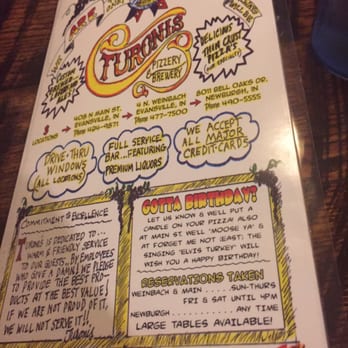 TURONI'S
PIZZERY
& BREWERY
DELICIOUS
THIN CRUST
PIZZA'S
3 LOCATIONS
408 N MAIN ST.
EVANSVILLE, IN
Phone 424-9871
4 N. WEINBACH
EVANSVILLE, IN
Phone 477-7500
8011 BELL OAKS DR.
NEWBURGH, IN
Phone 490-5555
DRIVE-THRU
WINDOWS
(ALL LOCATIONS)
FULL SERVICE
BAR...FEATURING
PREMIUM LIQUORS
WE ACCEPT
ALL MAJOR
CREDIT-CARDS
COMMITMENT to EXCELLENCE
TURONIS IS DEDICATED TO...
WARM & FRIENDLY SERVICE
TO OUR GUESTS... BY EMPLOYEES
WHO GIVE A DAMN! WE PLEDGE
TO PROVIDE THE BEST PRO-
DUCTS AT THE BEST VALUE!
IF WE ARE NOT PROUD OF IT,
WE WILL NOT SERVE IT!
Turonis
GOTTA BIRTHDAY?
LET US KNOW & WE'LL PUT A
CANDLE ON YOUR PIZZA! ALSO
AT MAIN ST. WE'LL 'MOOSE YA' &
AT FORGET ME NOT (EAST), THE
SINGING 'ELVIS TURKEY' WILL
WISH YOU A HAPPY BIRTHDAY!
RESERVATIONS TAKEN
WEINBACH & MAIN ...... SUN-THURS
FRI & SAT UNTIL 4PM
NEWBURGH ............ ANY TIME
LARGE TABLES AVAILABLE!